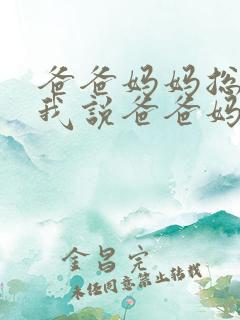 爸爸妈妈总
我说爸爸妈
金昌完
未经同意禁止转载